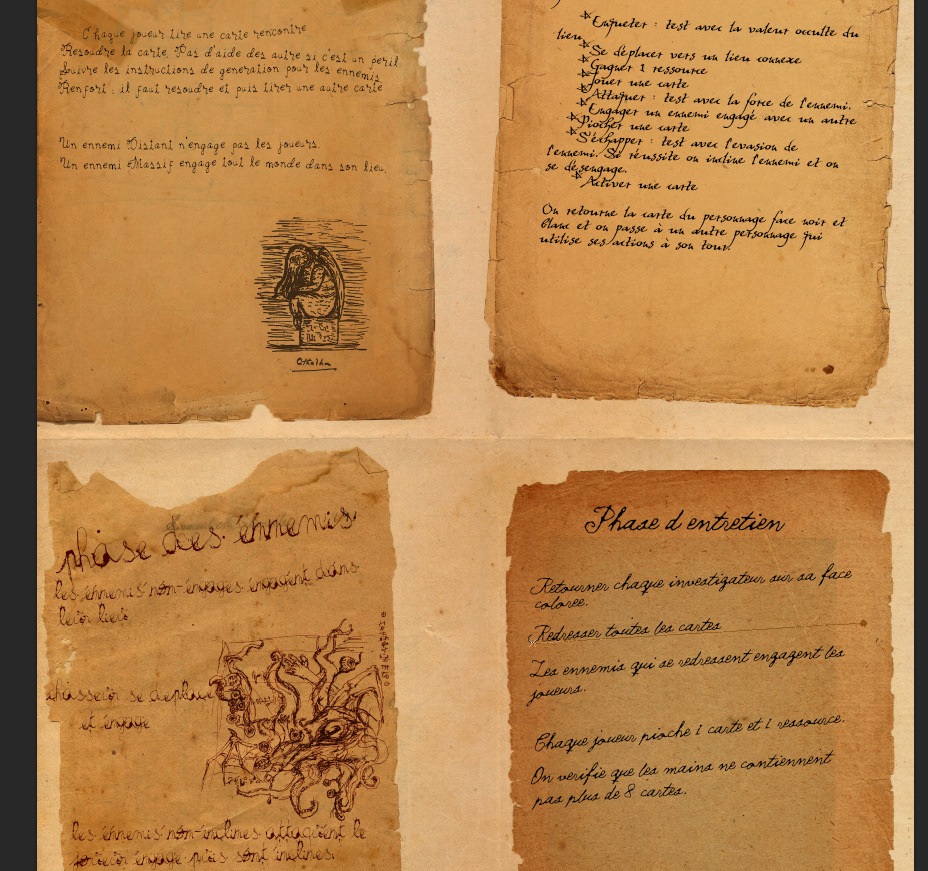 Chaque joueur tire une carte rencontre
Resoudre la carte. Pas d'aide des autre si c'est un peril
Suivre les instructions de generation pour les ennemis
Renfort : il faut resoudre et puis tirer une autre carte
Un ennemi Distant n'engage pas les joueurs.
Un ennemi Massif engage tout le monde dans son lieu.
Cthulhu
Enqueter : test avec la valeur occulte du
lieu
Se déplacer vers un lieu connexe
Gagner 1 ressource
Jouer une carte
Attaquer : test avec la force de l'ennemi.
Engager un ennemi engagé avec un autre
Piocher une carte
S'échapper : test avec l'evasion de
l'ennemi. Si réussite on incline l'ennemi et on
se desengage.
Activer une carte
On retourne la carte du personnage face noir et
blanc et on passe à un autre personnage qui
utilise ses actions à son tour.
phase des énnemis
les énnemis non-engages engagent dans
leur lieu
chasseur se deplace
et engage
les énnemis non-inclines attaquent le
joueur engage puis sont inclines.
Phase d entretien
Retourner chaque investigateur sur sa face
coloree.
Redresser toutes les cartes
Les ennemis qui se redressent engagent les
joueurs.
Chaque joueur pioche 1 carte et 1 ressource.
On verifie que les mains ne contiennent
pas plus de 8 cartes.